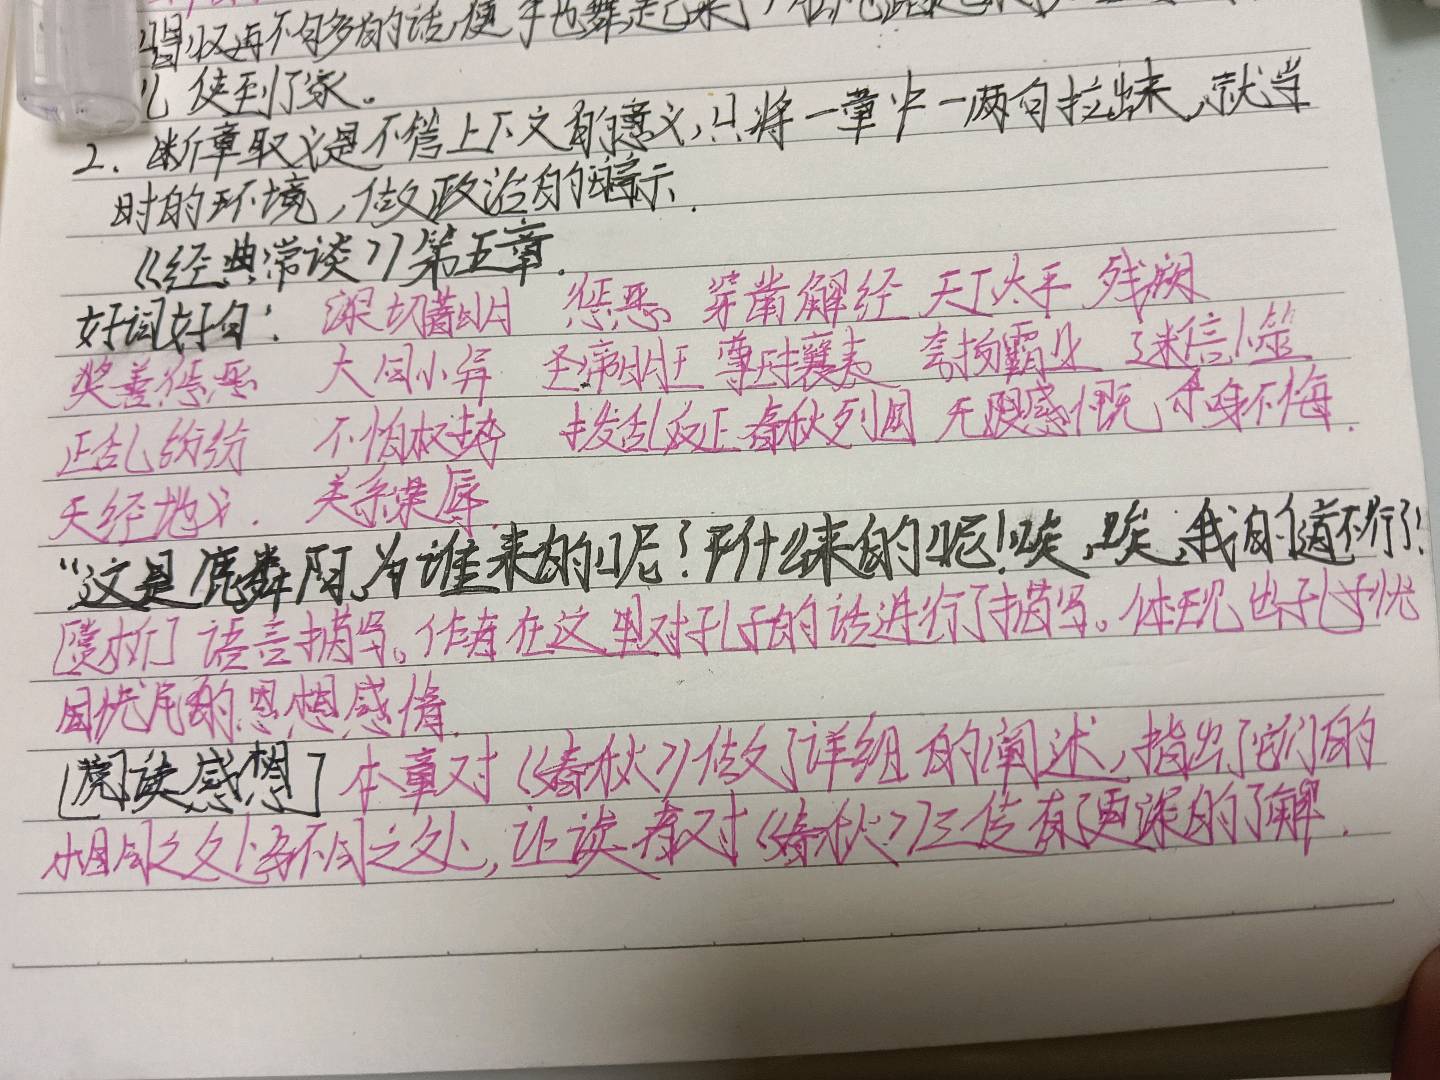 唱叹再不够的话,便手也舞起来
使到了家。
2.断章取义是不管上下文的意义,只将一章中一两句拉出来,就当
时的环境,做政治的暗示.
《经典常谈》第五章.
好词好句: 深切著明 惩恶 穿凿解经 天下太平 残阙
奖善惩恶 大同小异 圣帝明王 尊王攘夷 素拍霸业 迷信卜筮
正乱纷纷 不怕权势 拨乱反正 春秋列国 无限感慨,杀身不悔.
天经地义. 关系荣辱.
“这是麒麟阿,为谁来的呢?干什么来的呢!唉,唉,我的道不行了!
[赏析]语言描写。作者在这里对孔子的话进行了描写。体现出孔子忧
国忧民的思想感情.
[阅读感想]本章对《春秋》做了详细的阐述,指出了它们的
相同之处与不同之处,让读者对《春秋》三传有了更深的了解.